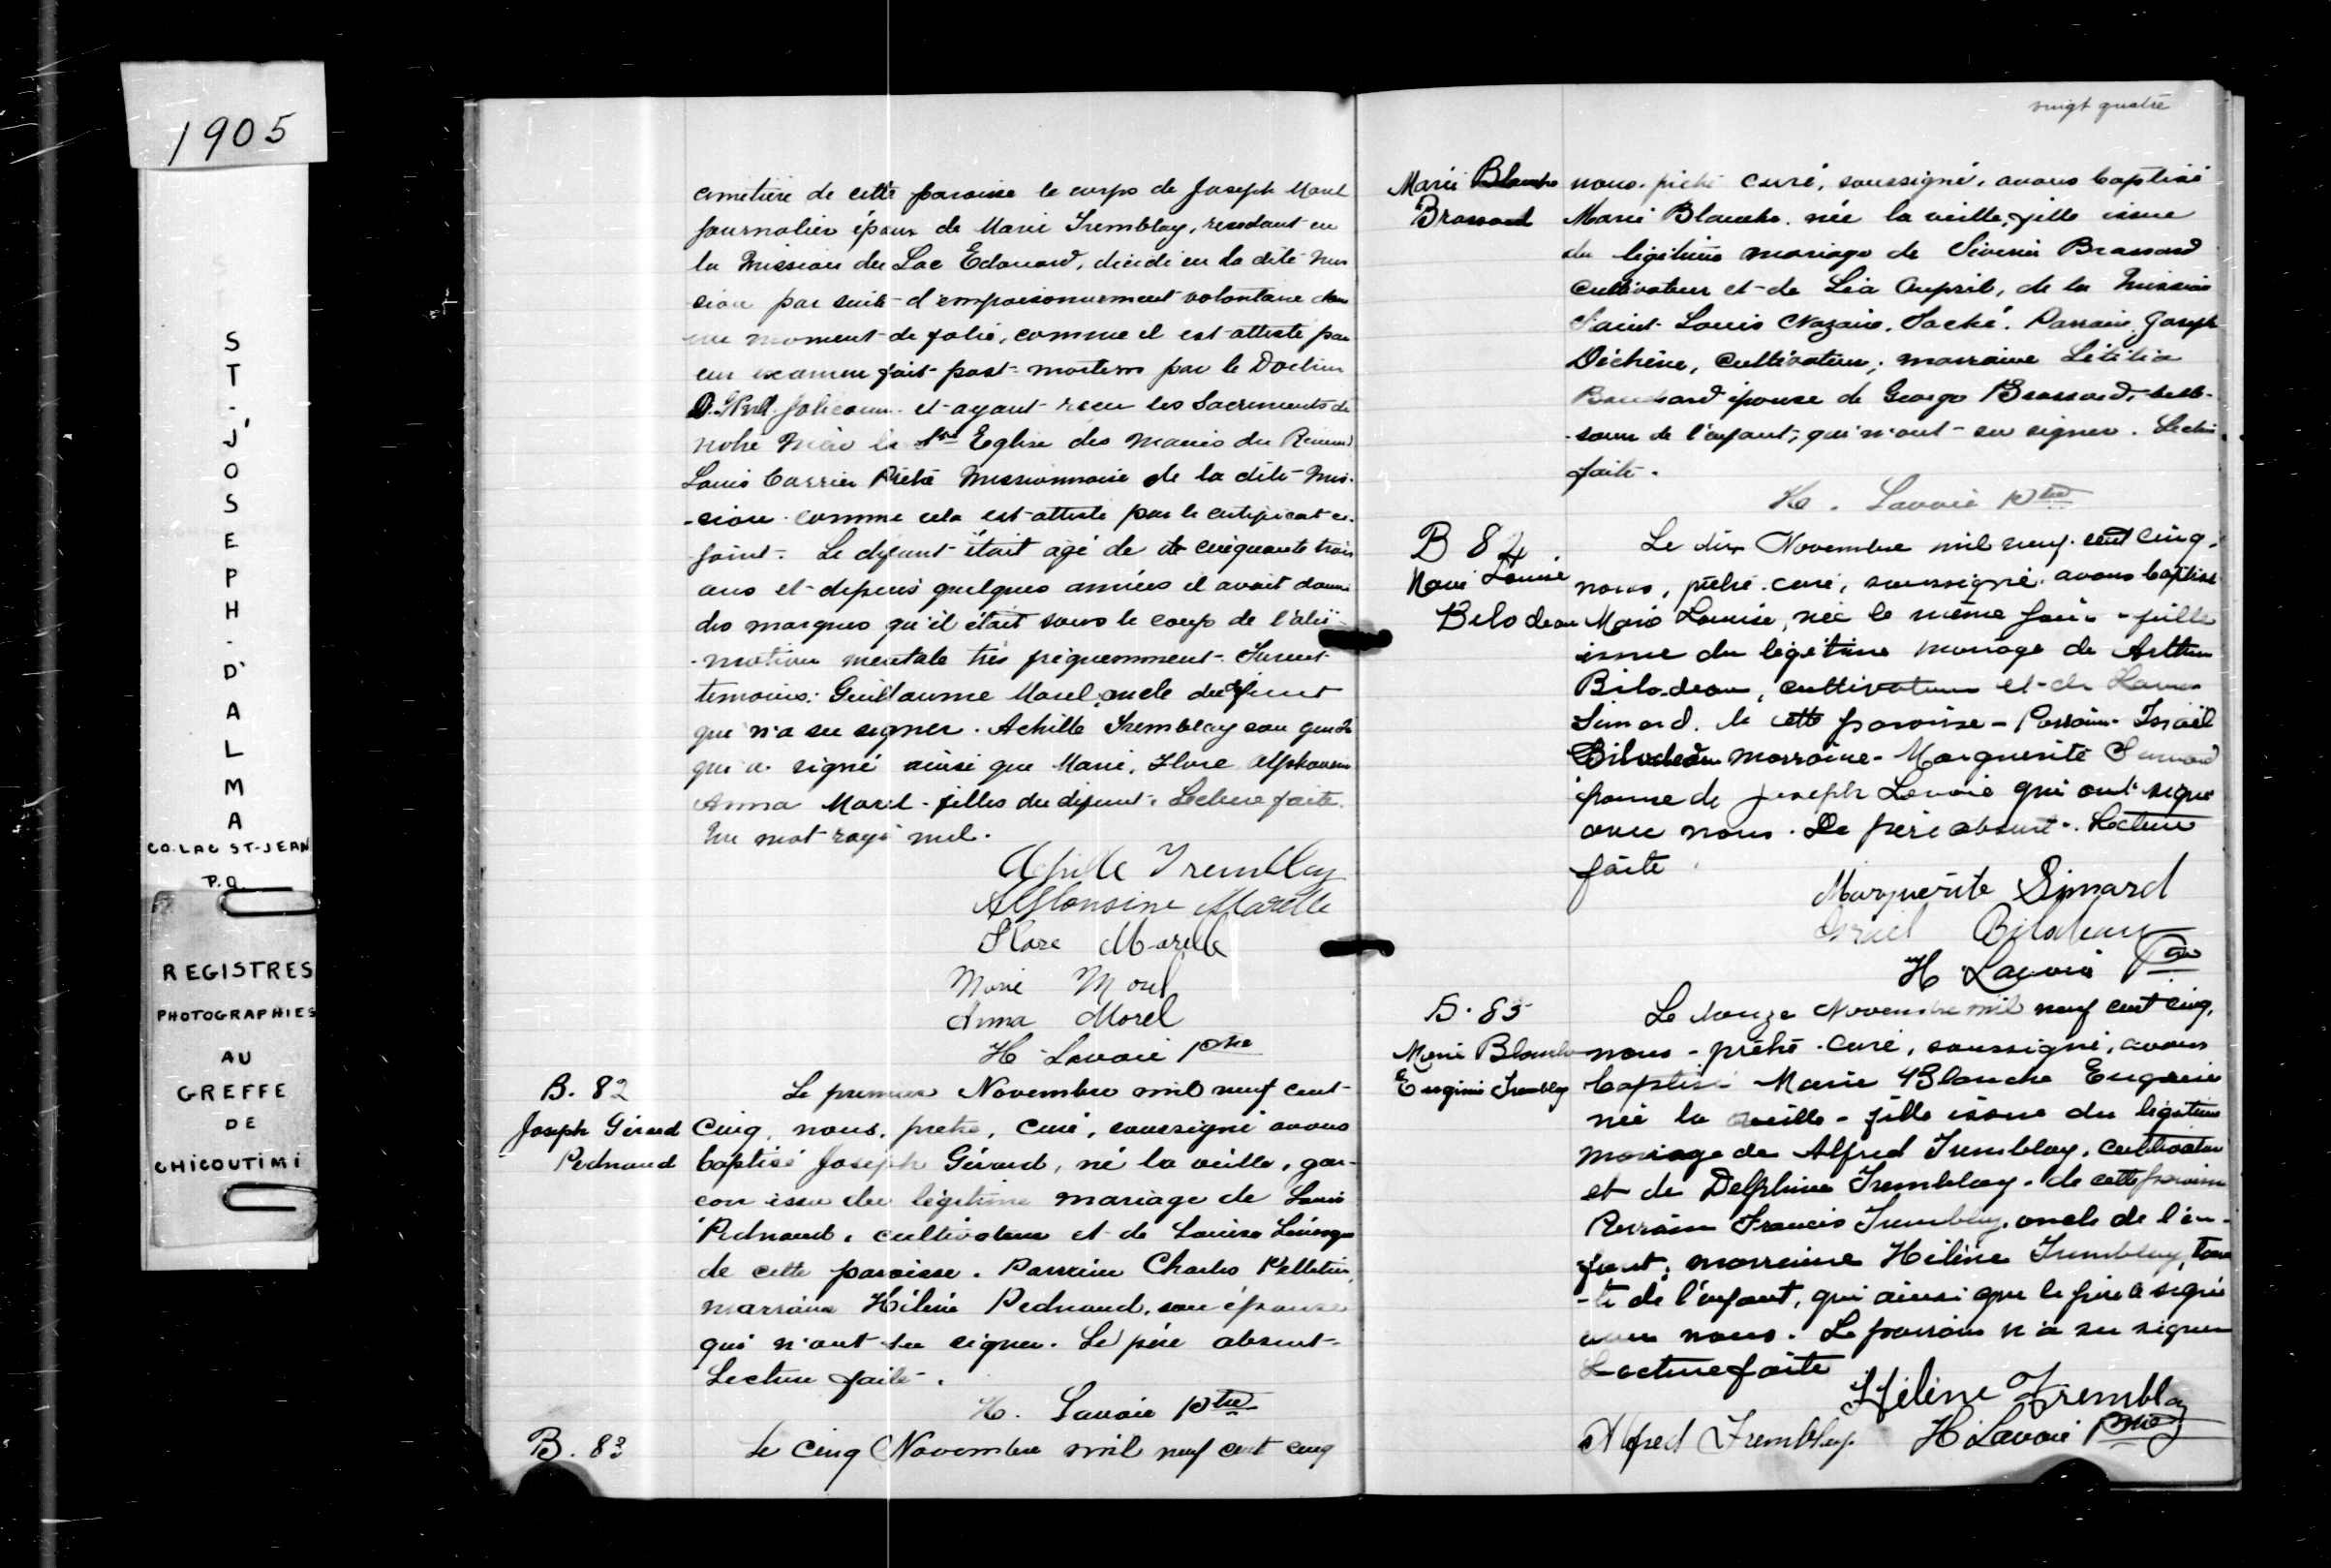 1905
ST-JOSEPH-D'ALMA
CO. LAC ST-JEAN
P.Q.
REGISTRES
PHOTOGRAPHIES
AU
GREFFE
DE
CHICOUTIMI
cimetière de cette paroisse le corps de Joseph Morel
journalier époux de Marie Tremblay, residant en
la Mission du Lac Edouard, décédé en la dite Mis
sion par suite d'empoisonnement volontaire dans
un moment de folie, comme il est attesté par
un examen fait post-mortem par le Docteur
Jolicoeur et ayant recu les Sacrements de
notre Mère la Ste Eglise des mains du Reverend
Louis Carrier Prêtre Missionnaire de la dite Mis-
-sion comme cela est attesté par le certificat ci-
joint. Le défunt était agé de cinquante trois
ans et depuis quelques années il avait donné
des marques qu'il était sous le coup de l'alié-
-nation mentale très fréquemment. Furent
temoins: Guillaume Morel, oncle du défunt
qui n'a su signer. Achille Tremblay son gendre
qui a signé ainsi que Marie, Flore Alphonsine
Anna Morel - filles du défunt. Lecture faite.
Un mot rayé nul.
Achille Tremblay
Alphonsine Morelle
Flore Morelle
Marie Morel
Anna Morel
H. Lavoie Ptre
B. 82
Joseph Gérard
Pednaud
Le premier Novembre mil neuf cent
Cinq, nous, pretre, curé, soussigné avons
baptisé Joseph Gérard, né la veille, gar-
con issu du légitime mariage de Louis
Pednaud, cultivateur et de Louise Lévesque
de cette paroisse. Parrain Charles Pelletier,
marraine Hélène Pednaud, son épouse
qui n'ont su signer. Le père absent-
Lecture faite.
H. Lavoie Ptre
B. 83
Le cinq Novembre mil neuf cent cinq
vingt quatre
Marie Blanche
Brassard
nous, prêtre curé, soussigné, avons baptisé
Marie Blanche, née la veille, fille issue
du légitime mariage de Brassard
cultivateur et de Léa, de la Mission
Saint Louis Nazaire, Taché. Parrain Joseph
Déchène, cultivateur; marraine Létitia
Bouchard épouse de George Brassard, belle-
-soeur de l'enfant, qui n'ont su signer. Lecture
faite.
H. Lavoie Ptre
B 84.
Marie Louise
Bilodeau
Le dix Novembre mil neuf cent cinq,
nous, prêtre curé, soussigné avons baptisé
Marie Louise, née le même jour - fille
issue du légitime mariage de Arthur
Bilodeau, cultivateur et de
Simard, de cette paroisse - Parrain Israël
Bilodeau marraine - Marguerite Simard
épouse de Joseph Lavoie qui ont signé
avec nous. Le père absent. Lecture
faite
Marguerite Simard
Israel Bilodeau
H Lavoie Ptre
B. 85
Marie Blanche
Eugénie Tremblay
Le douze Novembre mil neuf cent cinq,
nous - prêtre - curé, soussigné, avons
baptisé Marie Blanche Eugénie
née la veille - fille issue du légitime
mariage de Alfred Tremblay, cultivateur
et de Delphine Tremblay - de cette paroisse
Parrain Francis Tremblay, oncle de l'en-
fant; marraine Hélène Tremblay, tan
-te de l'enfant, qui ainsi que le père a signé
avec nous. Le parrain n'a su signer
Lecture faite
Hélène Tremblay
Alfred Tremblay H Lavoie Ptre